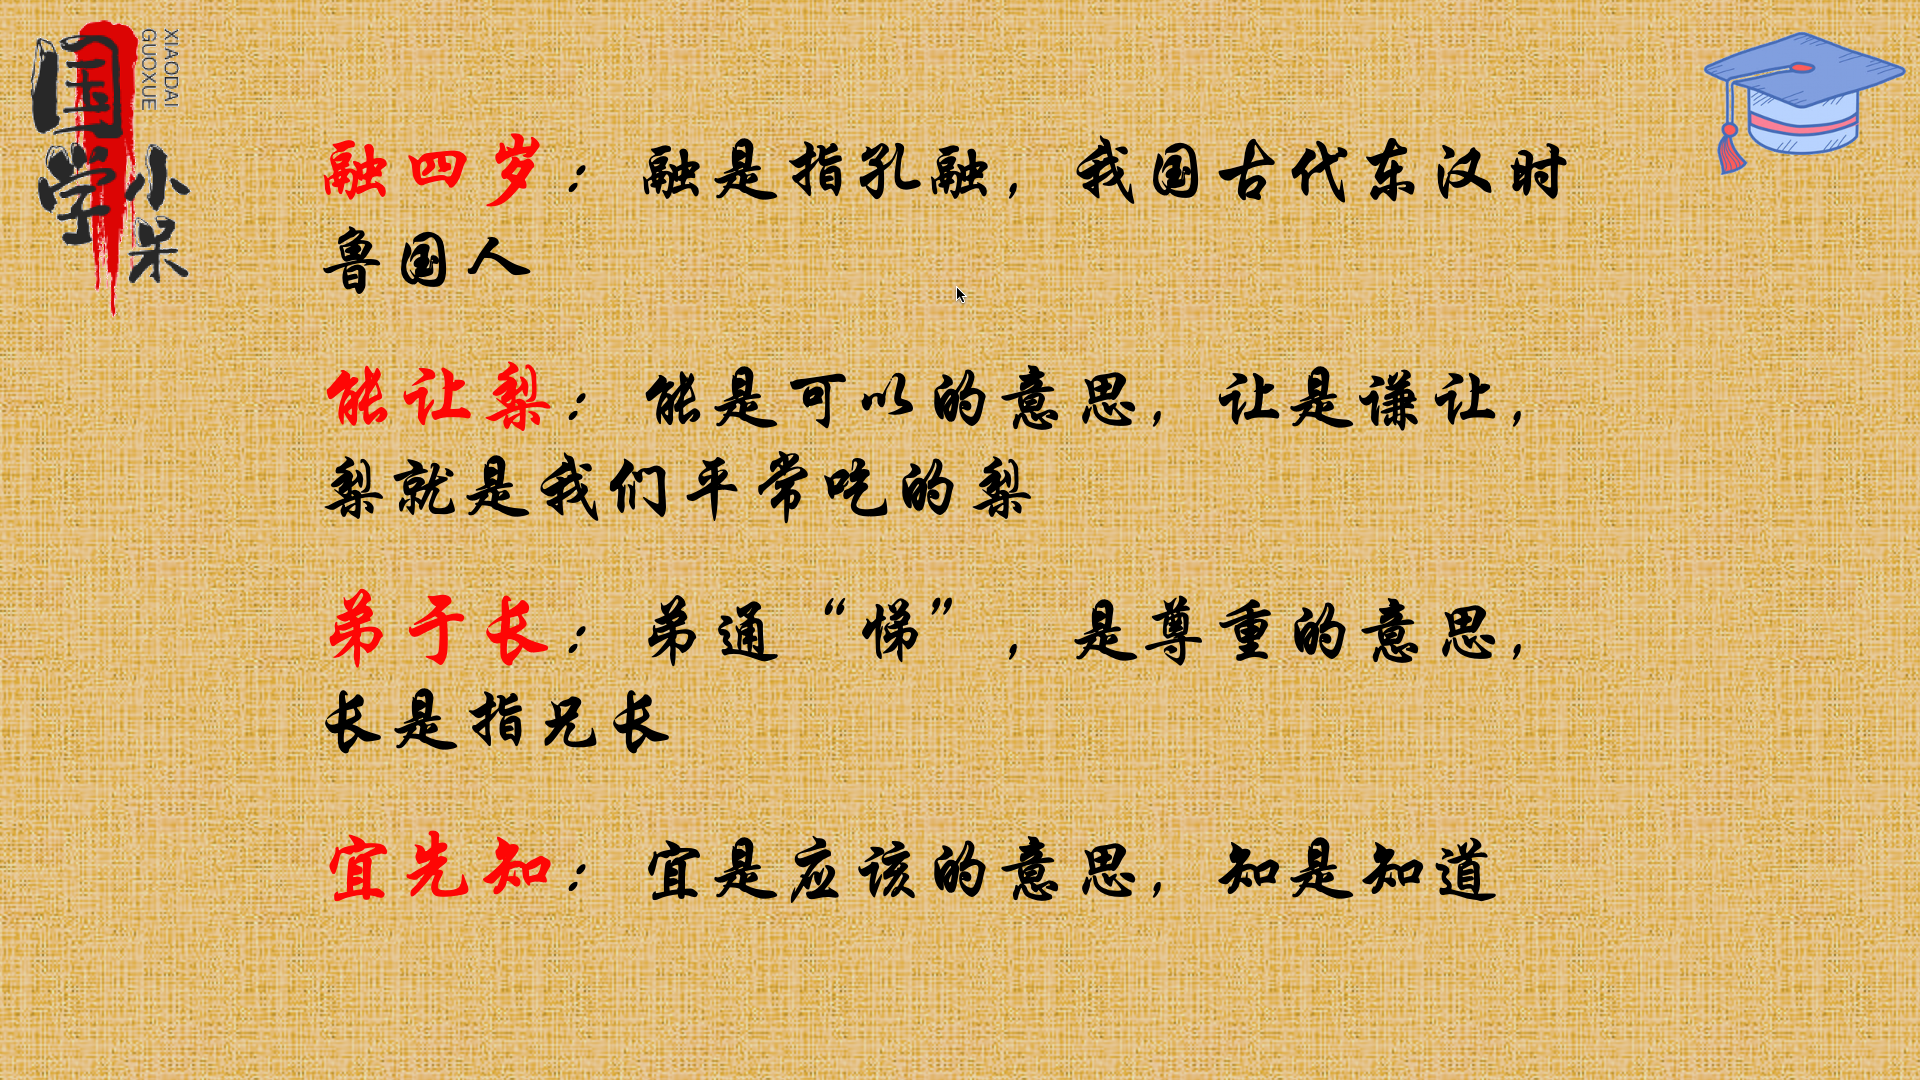 国学小呆
XIAODAI
GUOXUE
融四岁：融是指孔融，我国古代东汉时
鲁国人
能让梨：能是可以的意思，让是谦让，
梨就是我们平常吃的梨
弟于长：弟通“悌”，是尊重的意思，
长是指兄长
宜先知：宜是应该的意思，知是知道